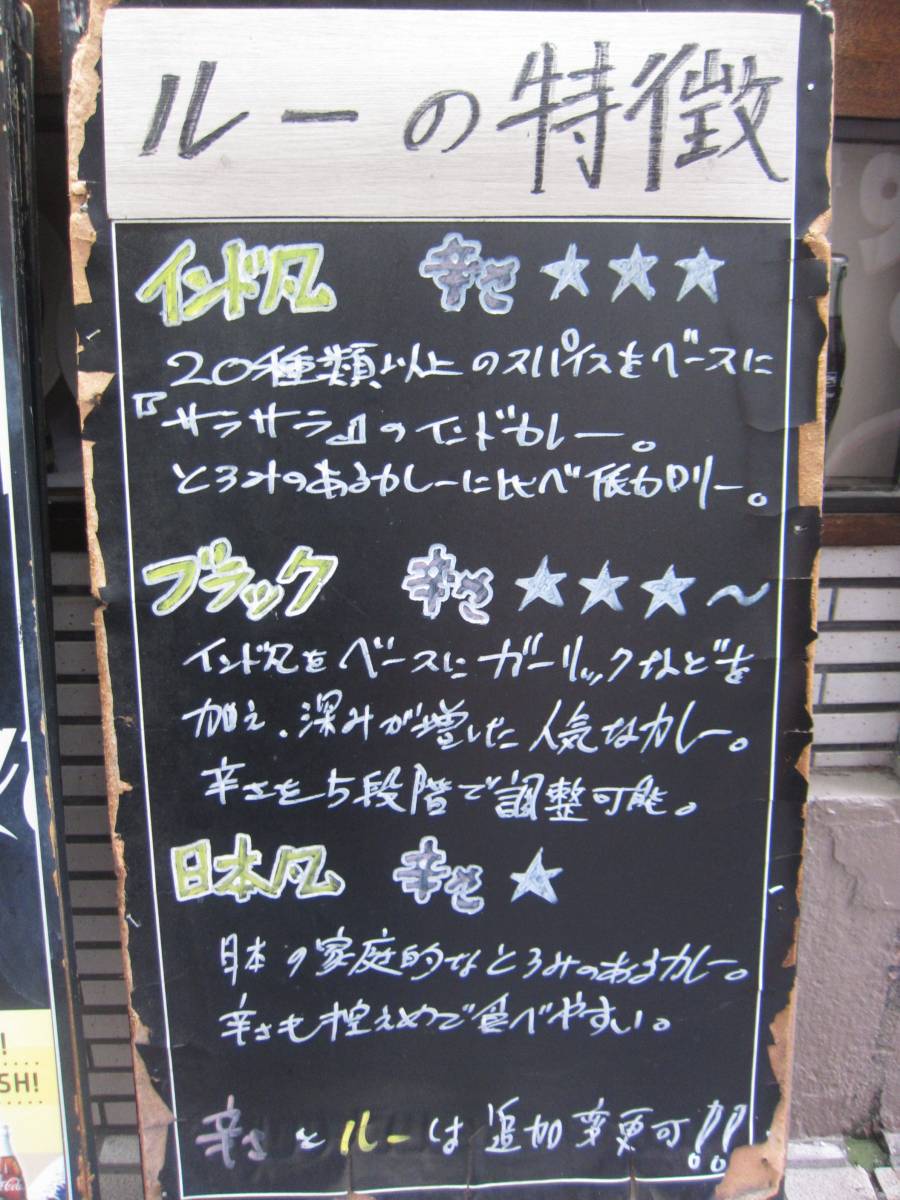 ルーの特徴
インド凡 辛さ★★★
20種類以上のスパイスをベースに
『サラサラ』のインドカレー。
とろみのあるカレーに比べ低カロリー。
ブラック 辛さ★★★〜
インド凡をベースにガーリックなどを
加え、深みが増した人気なカレー。
辛さを5段階で調整可能。
日本凡 辛さ★
日本の家庭的なとろみのあるカレー。
辛さも控えめで食べやすい。
辛さとルーは追加変更可!!
SH!
Coca-Cola